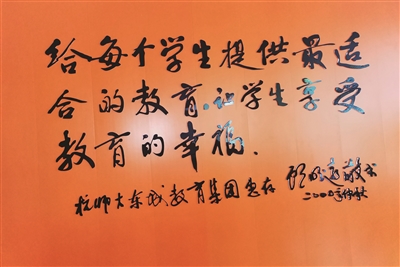 给每个学生提供最适
合的教育,让学生享受
教育的幸福、
杭师大东城教育集团惠存 顾明远敬书